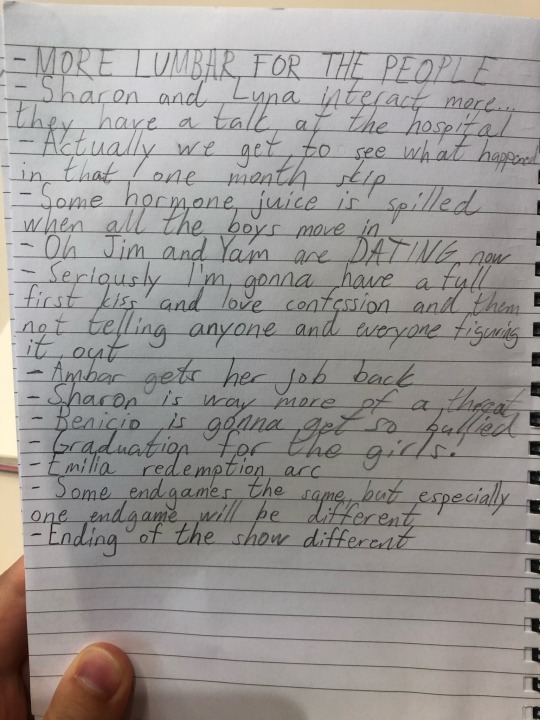 - MORE LUMBAR FOR THE PEOPLE
- Sharon and Luna interact more...
they have a talk at the hospital
- Actually we get to see what happened
in that one month skip
- Some hormone juice is spilled
when all the boys move in
- Oh Jim and Yam are DATING now
- Seriously I'm gonna have a full
first kiss and love confession and them
not telling anyone and everyone figuring
it out
- Ambar gets her job back
- Sharon is way more of a threat
- Benicio is gonna get so bullied
- Graduation for the girls.
- Emilia redemption arc
- Some endgames the same, but especially
one endgame will be different
- Ending of the show different